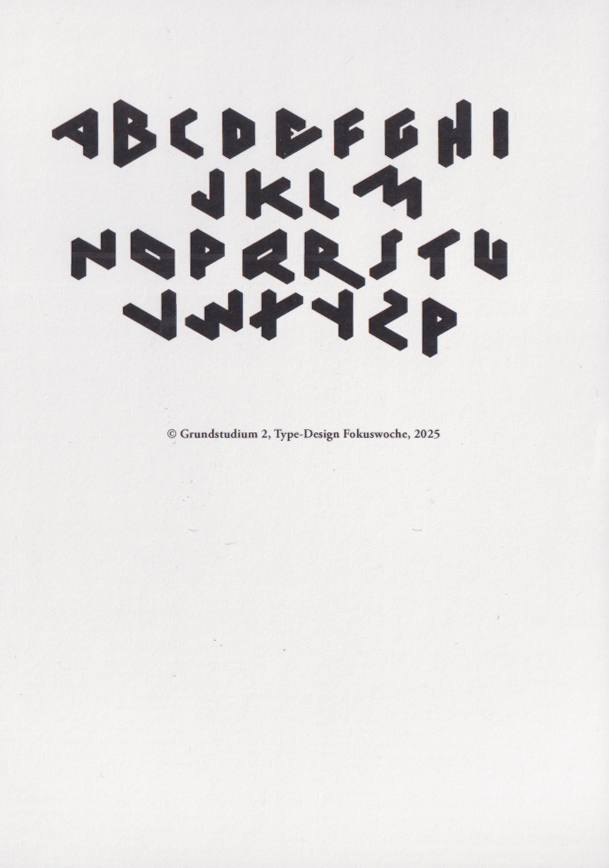 ABCDEFGHI
JKLM
NOPQRSTU
VWXYZP
© Grundstudium 2, Type-Design Fokuswoche, 2025